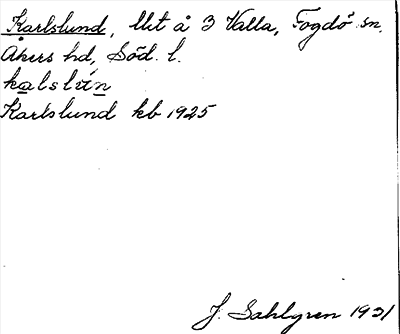 Karlslund, llht å 3 Valla, Fogdö sn,
Åkers hd, Söd. l.
kalslún
Karlslund kb 1925
J. Sahlgren 1931